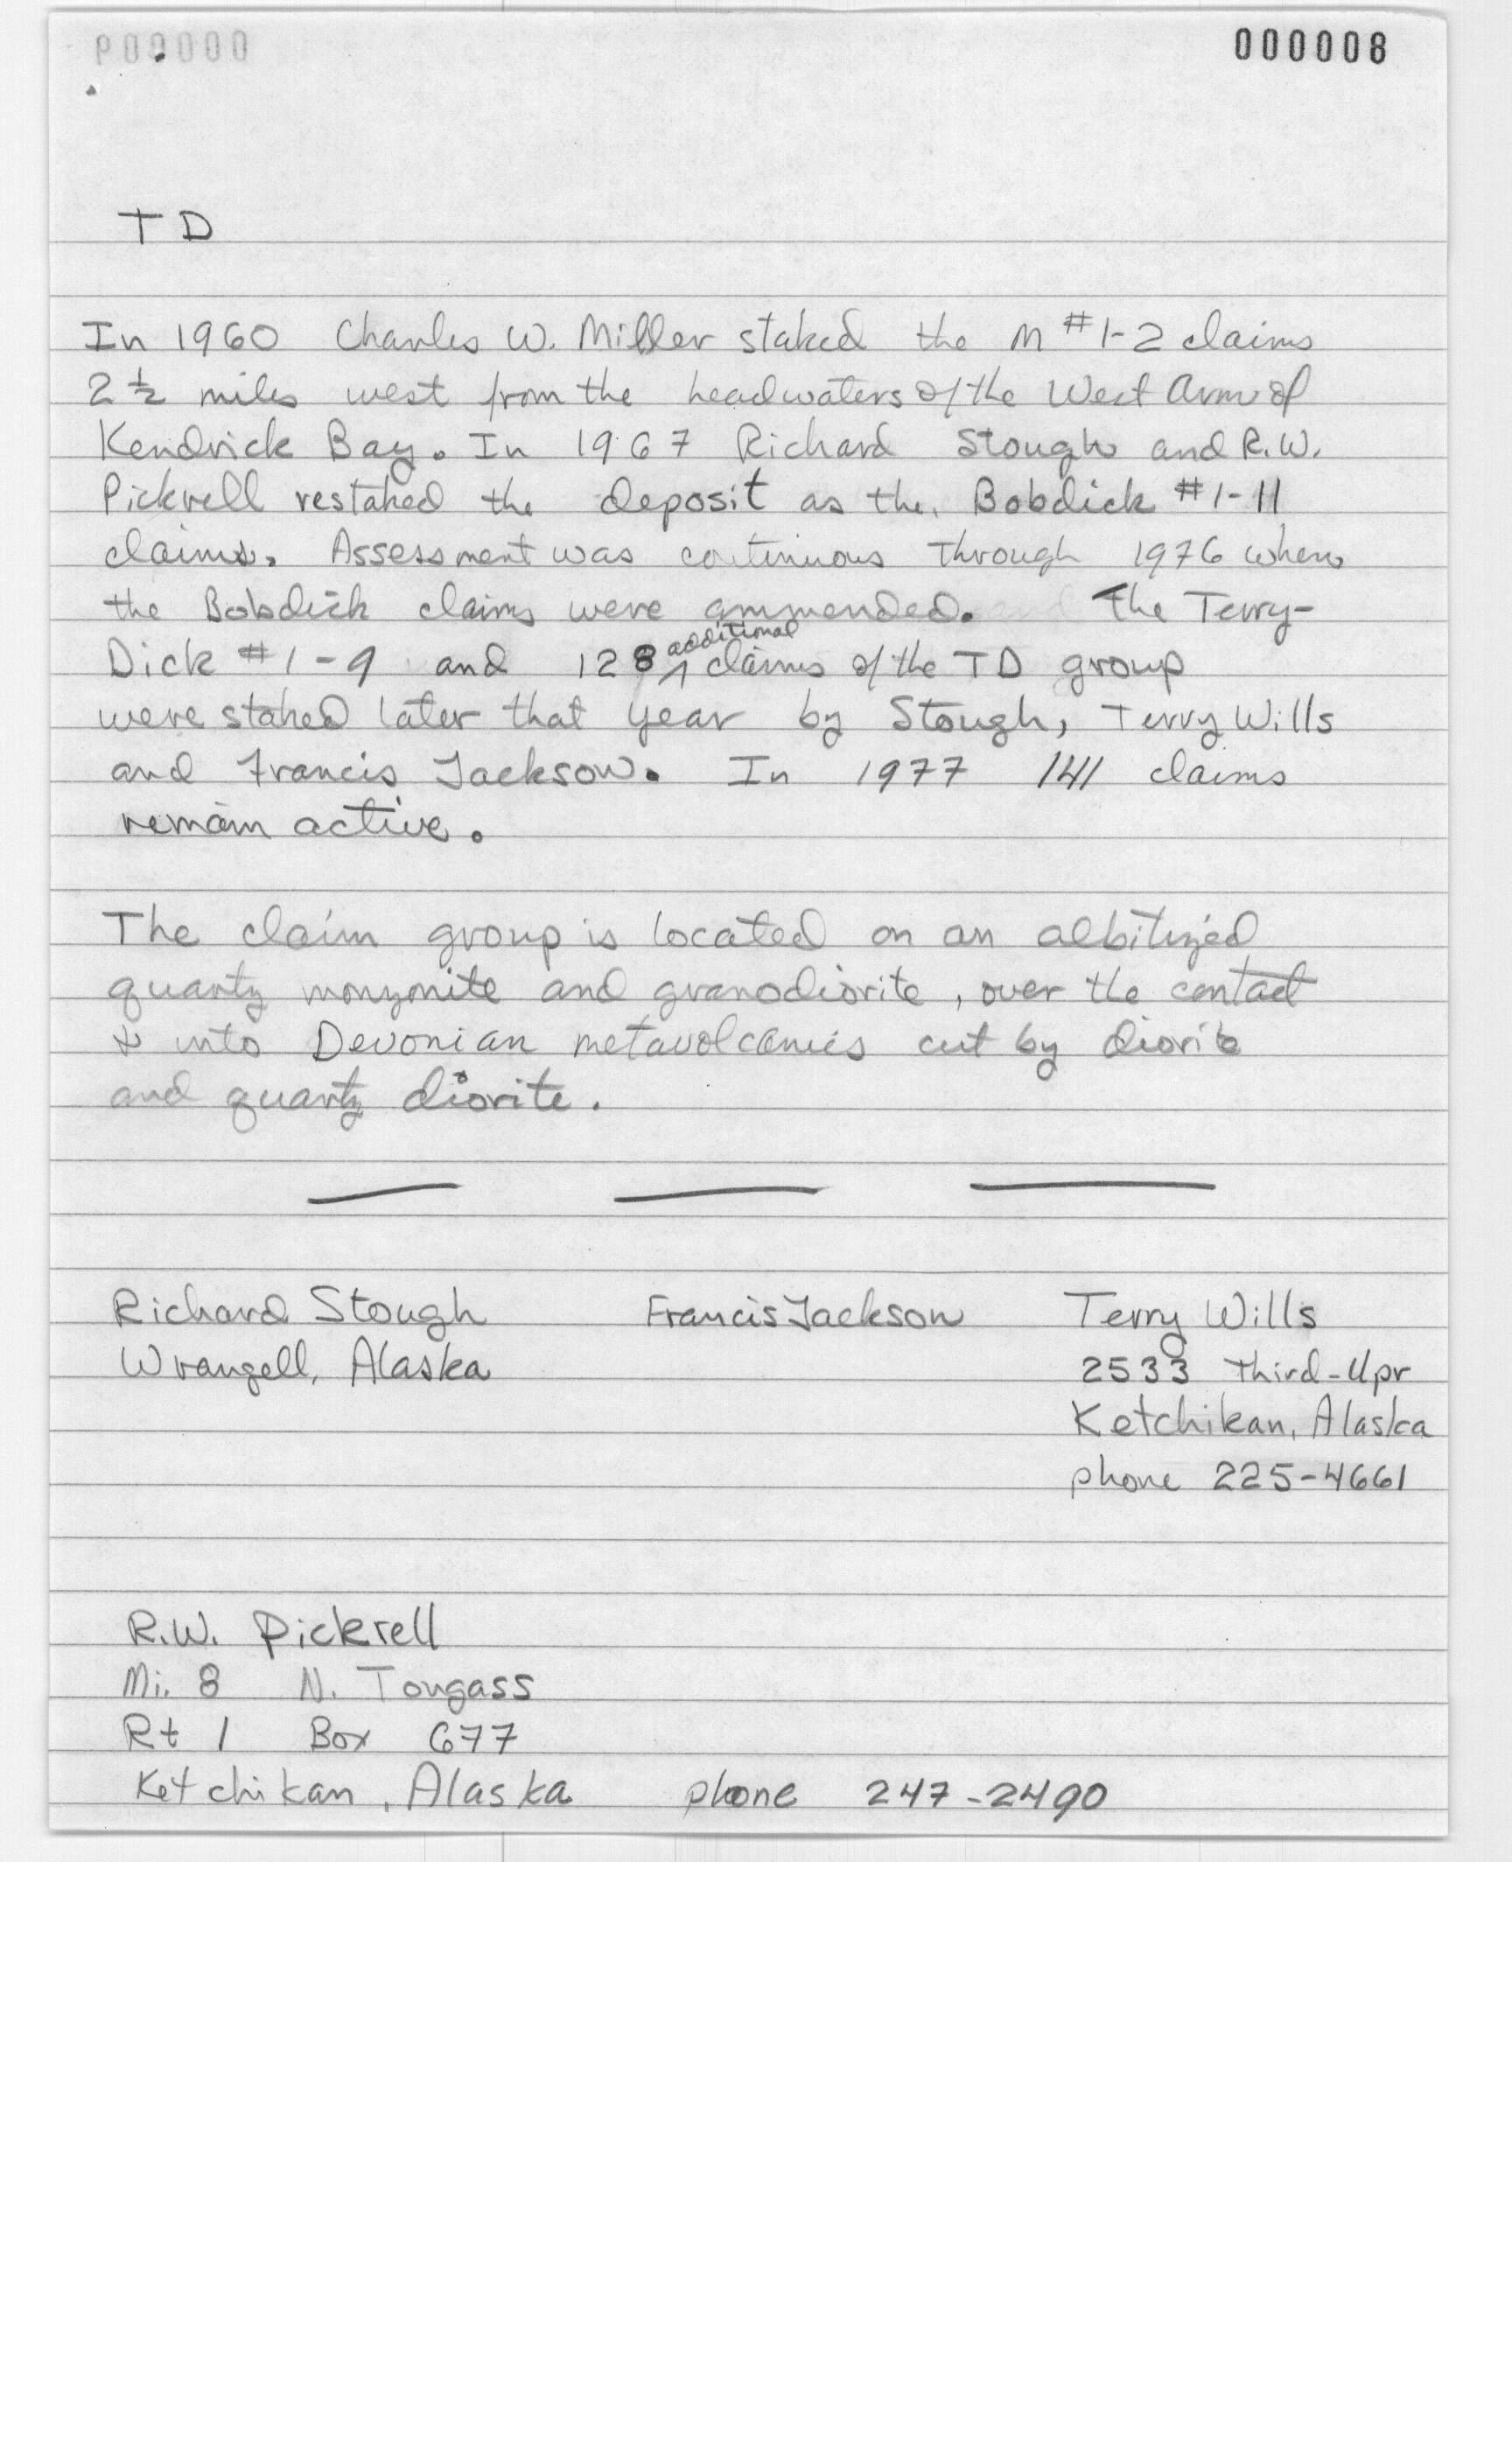 000008
TD
In 1960 Charles W. Miller staked the M #1-2 claims
2½ miles west from the headwaters of the West Arm of
Kendrick Bay. In 1967 Richard Stough and R.W.
Pickrell restaked the deposit as the Bobdick #1-11
claims. Assessment was continuous through 1976 when
the Bobdick claims were ammended. The Terry-
Dick #1-9 and 128 additional claims of the TD group
were staked later that year by Stough, Terry Wills
and Francis Jackson. In 1977 141 claims
remain active.
The claim group is located on an albitized
quartz monzonite and granodiorite, over the contact
& into Devonian metavolcanics cut by diorite
and quartz diorite.
Richard Stough Francis Jackson Terry Wills
Wrangell, Alaska 2533 Third-Upr
Ketchikan, Alaska
phone 225-4661
R.W. Pickrell
Mi. 8 N. Tongass
Rt 1 Box 677
Ketchikan, Alaska phone 247-2490